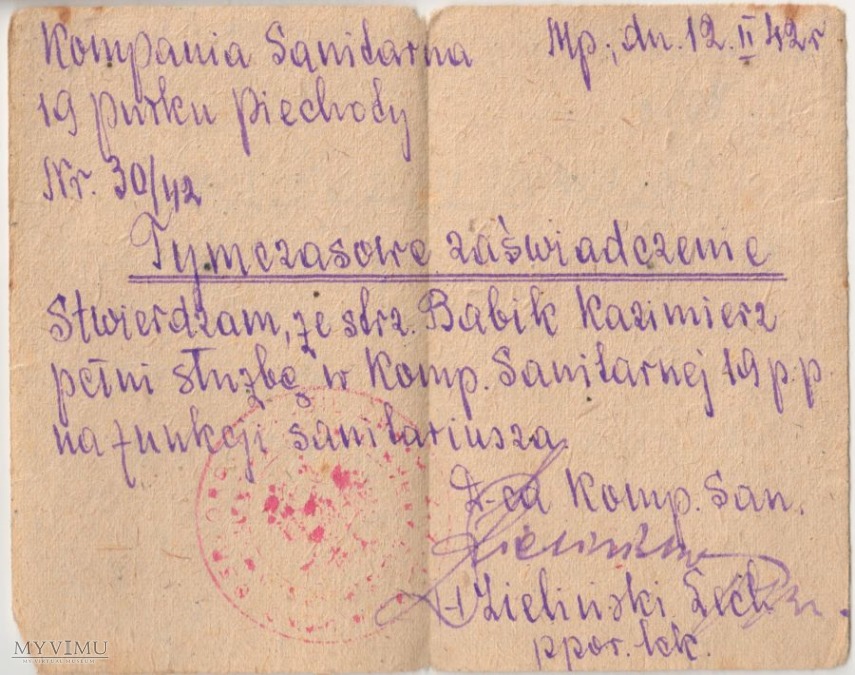 Kompania Sanitarna Mp., dn. 12. II 42 r
19 pułku Piechoty
Nr. 30/42
Tymczasowe zaświadczenie
Stwierdzam, że strz. Babik Kazimierz
pełni służbę w Komp. Sanitarnej 19 p.p.
na funkcji sanitariusza.
D-ca Komp. San.
Zieliński Lech
ppor. lek.
MYVIMU
MY VIRTUAL MUSEUM